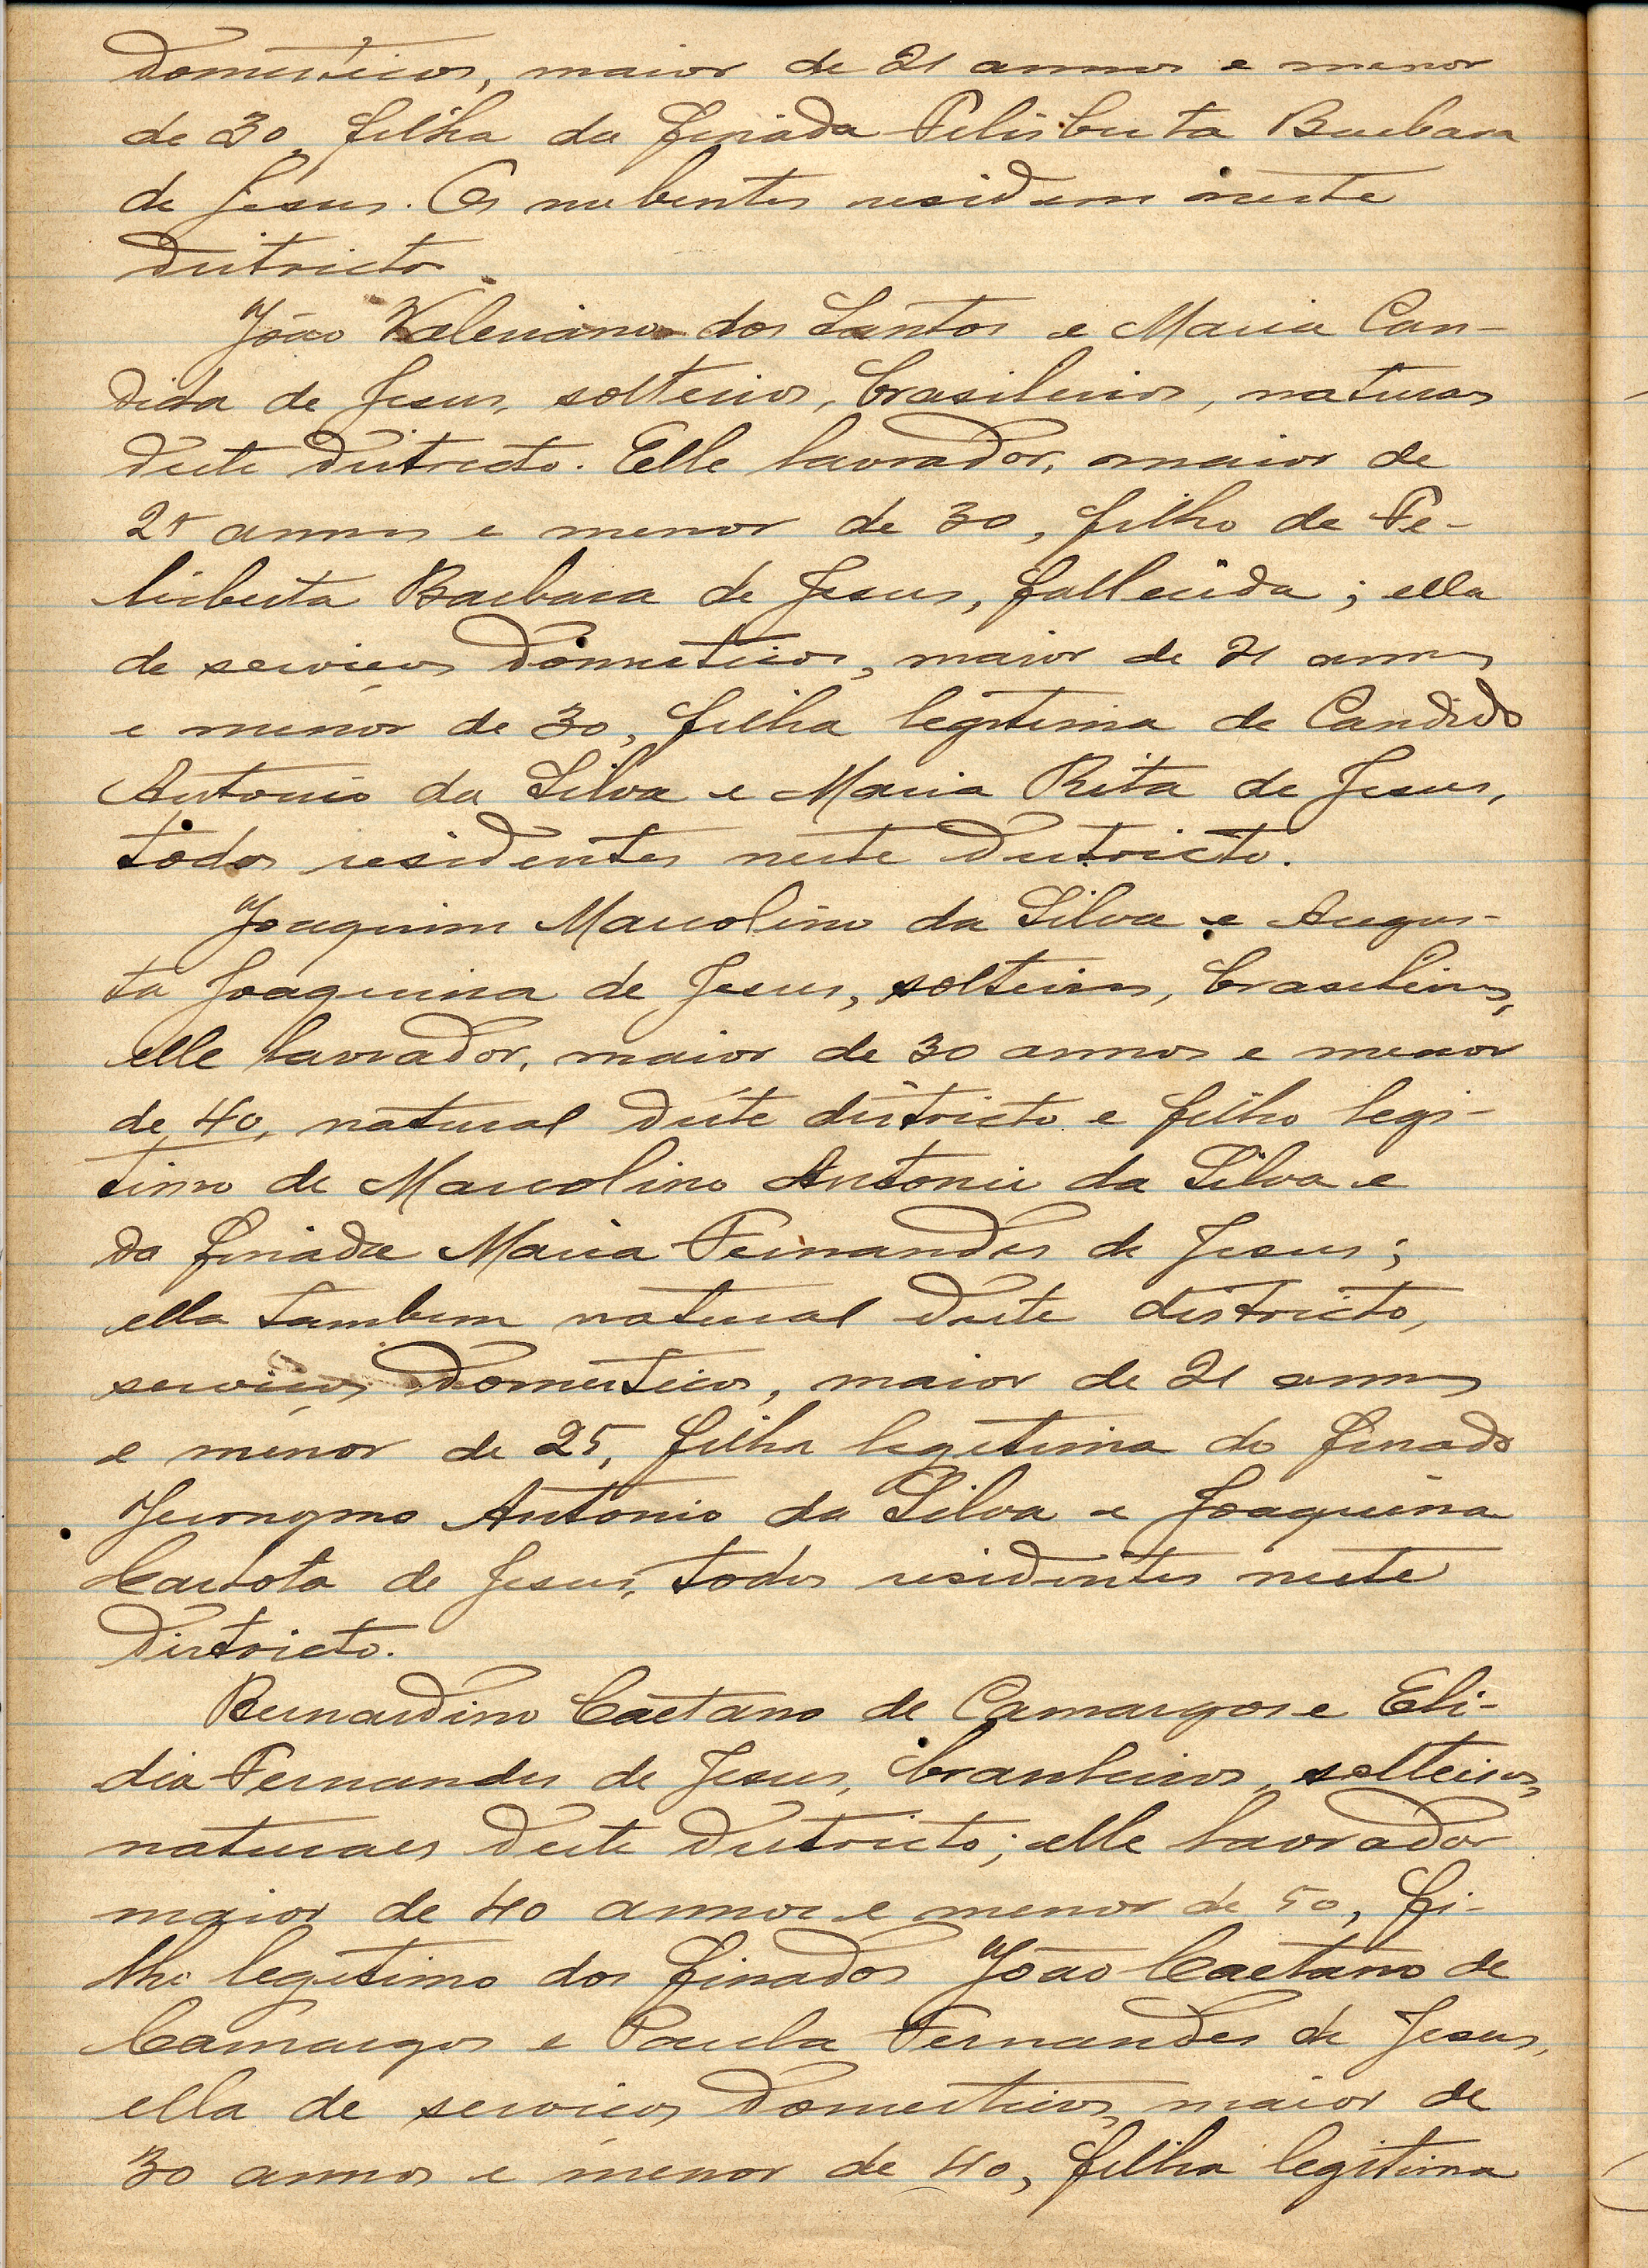 domesticos, maior de 21 annos e menor
de 30, filha da finada Felisberta Barbara
de Jesus. Os nubentes residem neste
districto.
João Valeriano dos Santos e Maria Can-
dida de Jesus, solteiros, brasileiros, naturaes
deste districto. Elle lavrador, maior de
25 annos e menor de 30, filho de Fe-
lisberta Barbara de Jesus, fallecida; ella
de serviços domesticos, maior de 21 annos
e menor de 30, filha legitima de Candido
Antonio da Silva e Maria Rita de Jesus,
todos residentes neste districto.
Joaquim Marcolino da Silva e Augus-
ta Joaquina de Jesus, solteiros, brasileiros,
elle lavrador, maior de 30 annos e menor
de 40, natural deste districto e filho legi-
timo de Marcolino Antonio da Silva e
da finada Maria Fernandes de Jesus;
ella tambem natural deste districto,
serviços domesticos, maior de 21 annos
e menor de 25, filha legitima do finado
Jeronymo Antonio da Silva e Joaquina
Carlota de Jesus, todos residentes neste
districto.
Bernardino Caetano de Camargos e Eli-
dia Fernandes de Jesus, brasileiros, solteiros,
naturaes deste districto; elle lavrador
maior de 40 annos e menor de 50, fi-
lho legitimo dos finados João Caetano de
Camargos e Paula Fernandes de Jesus,
ella de serviços domesticos, maior de
30 annos e menor de 40, filha legitima